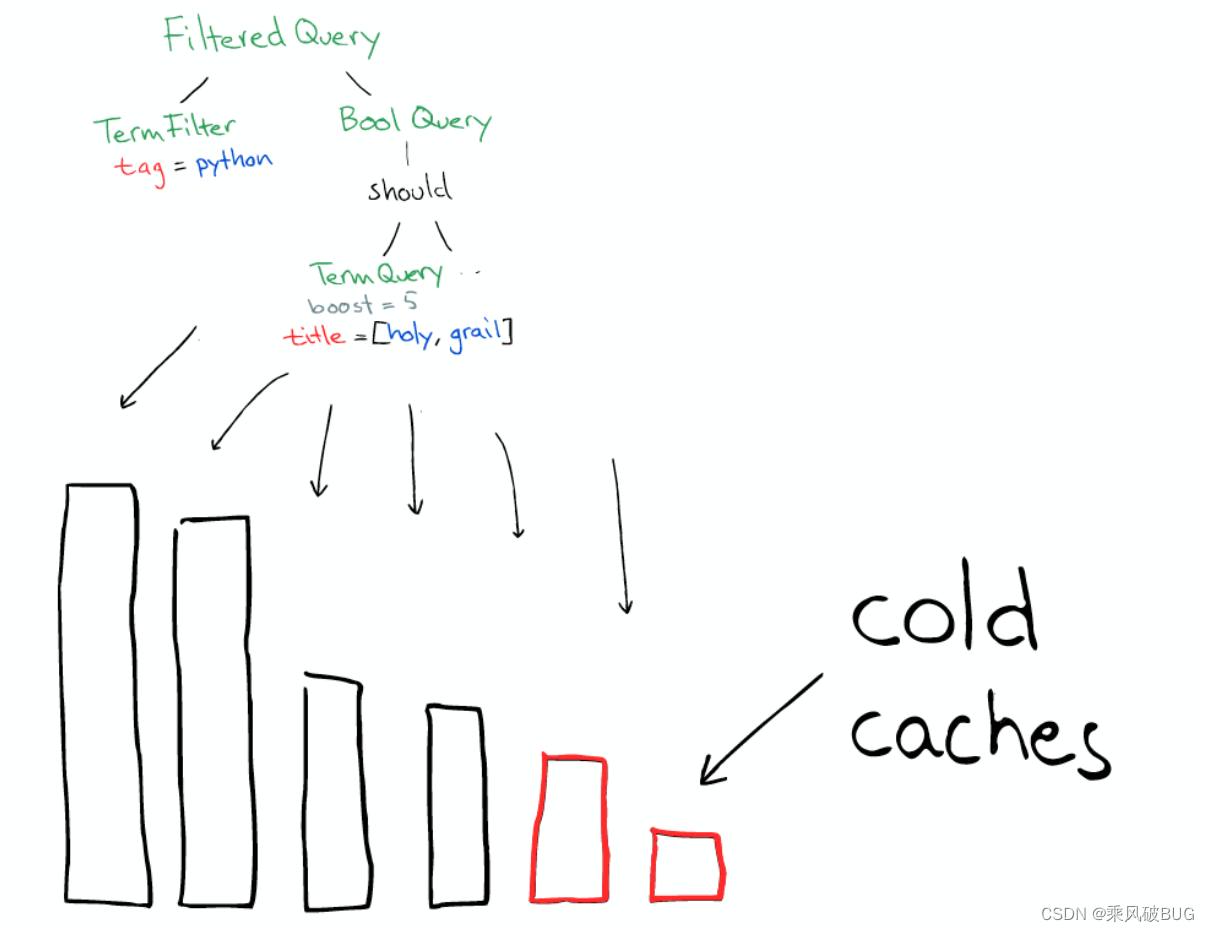 Filtered Query
TermFilter
tag = python
Bool Query
should
TermQuery ...
boost = 5
title = [holy, grail]
cold
caches
CSDN @乘风破BUG